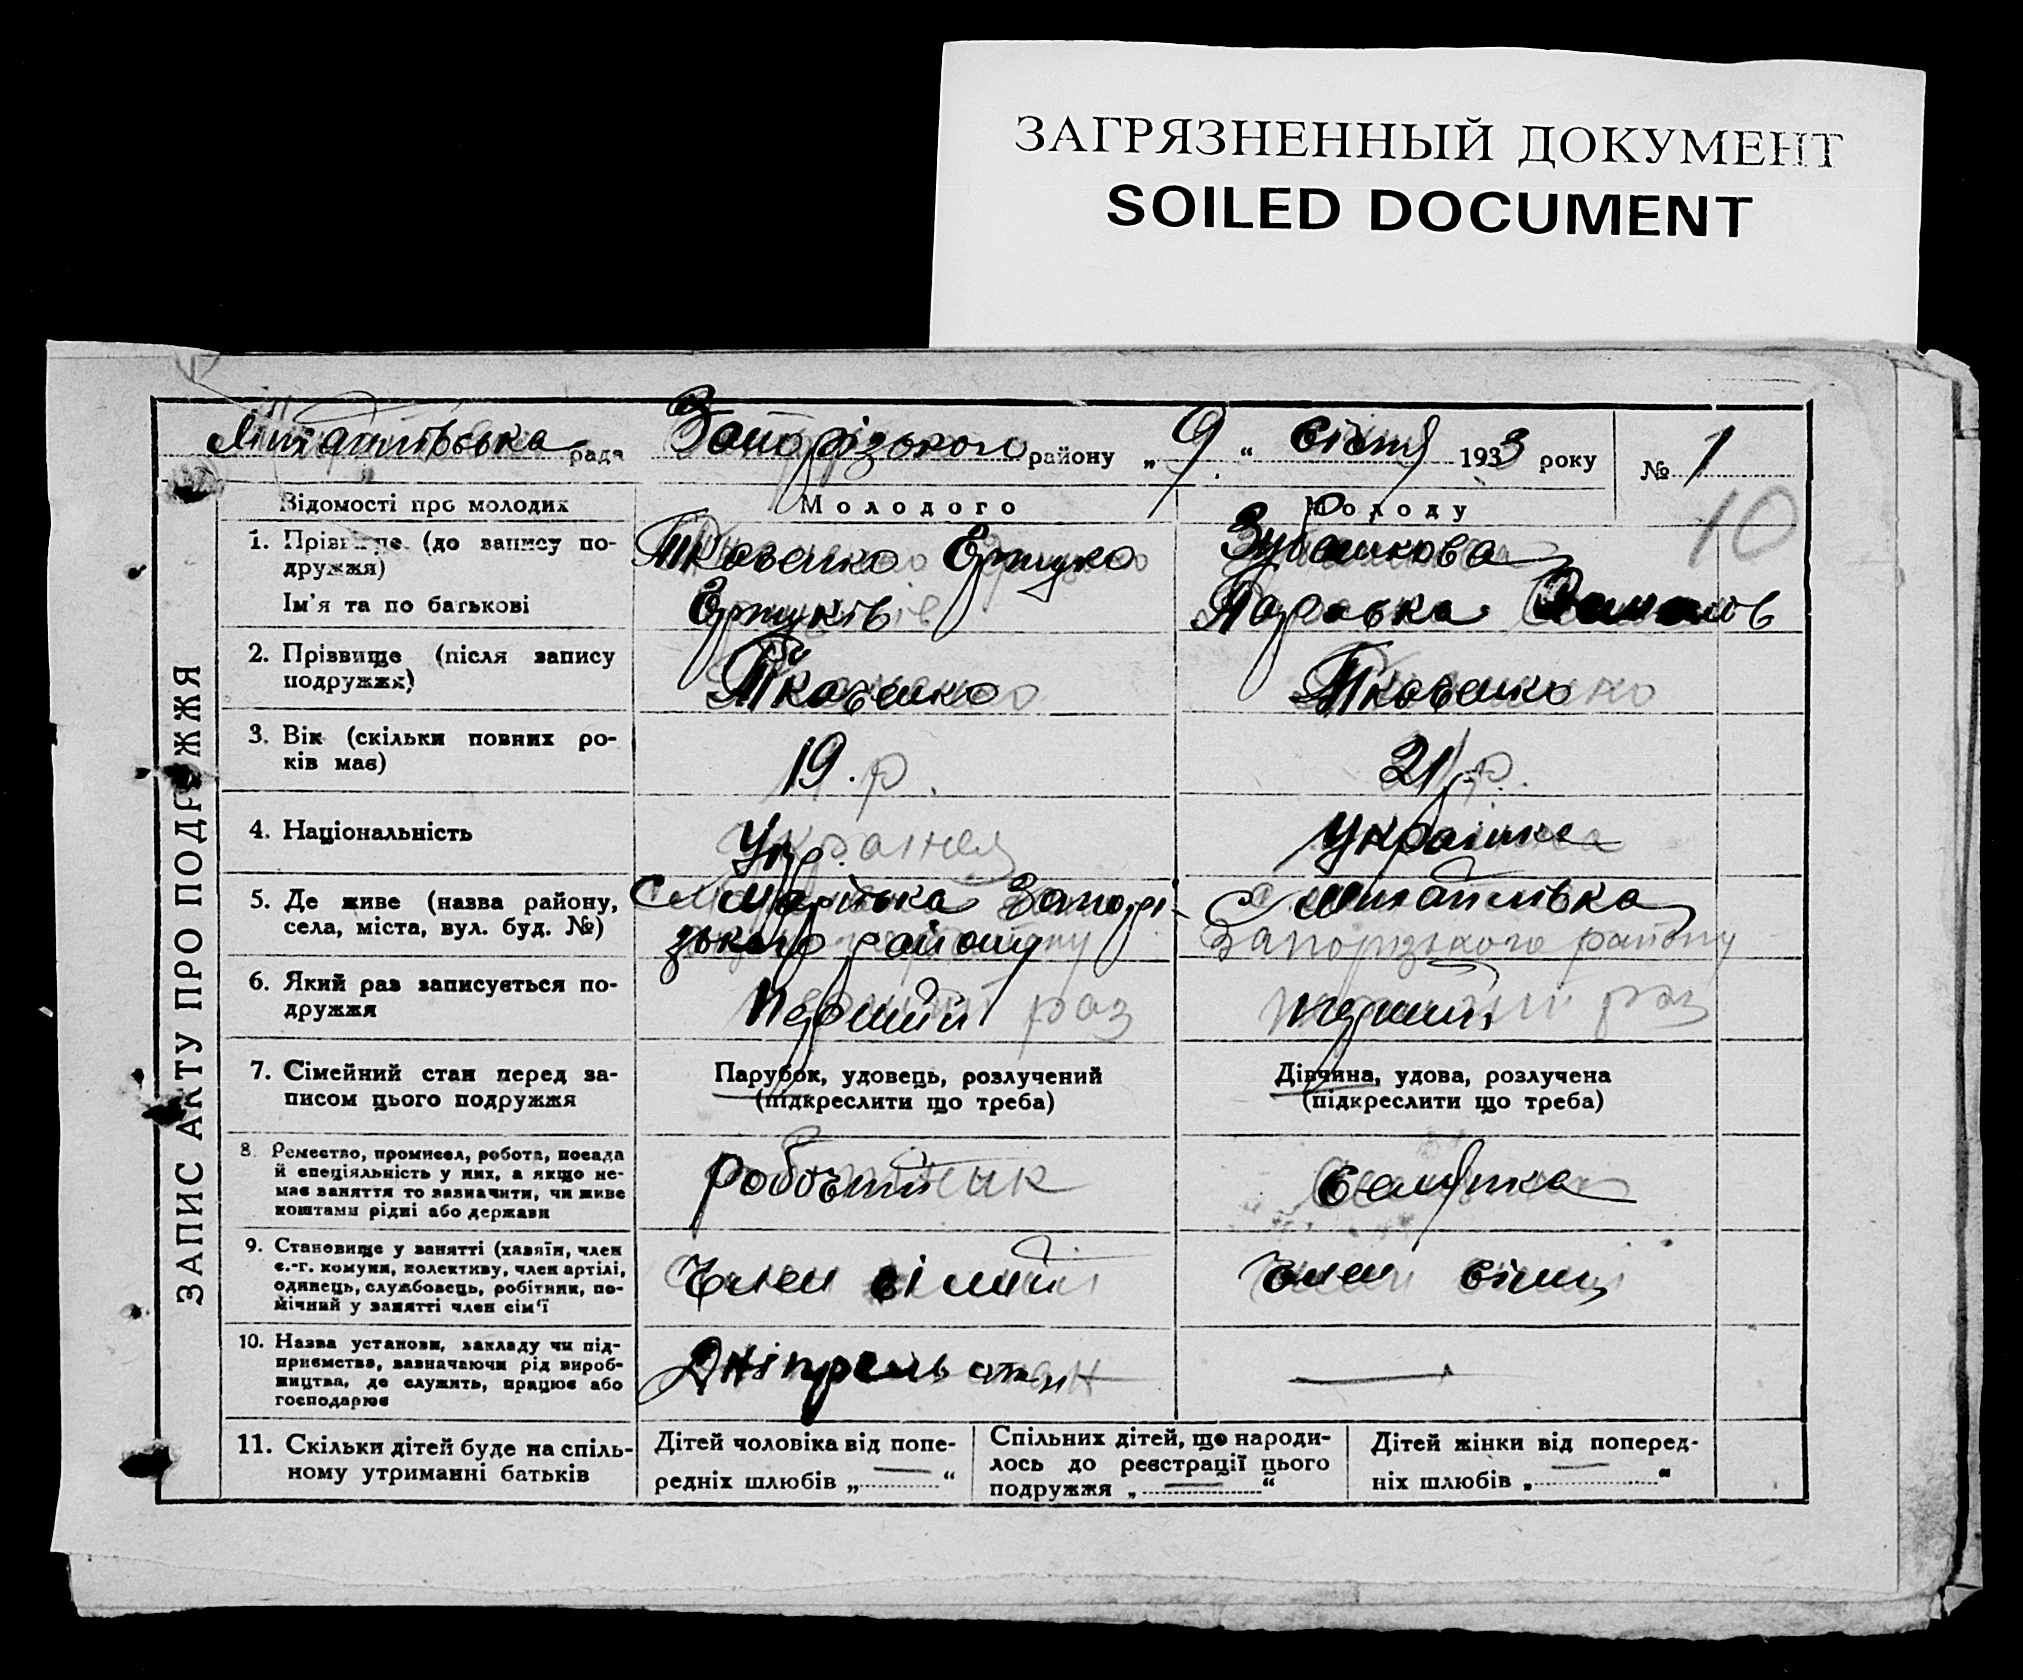 ЗАГРЯЗНЕННЫЙ ДОКУМЕНТ
SOILED DOCUMENT
рада Запорізького району „ 9 “ січня 1933 року № 1
10
Відомості про молодих
Молодого
Молоду
ЗАПИС АКТУ ПРО ПОДРУЖЖЯ
1. Прізвище (до запису по-
дружжя)
Ім'я та по батькові
Ткаченко
Зубашкова
2. Прізвище (після запису
подружжя)
Ткаченко
Ткаченко
3. Вік (скільки повних ро-
ків має)
19. р.
21 р.
4. Національність
Укр.
Українка
5. Де живе (назва району,
села, міста, вул. буд. №)
Запорі-
зького району
с. Михайлівка
Запорізького району
6. Який раз записується по-
дружжя
Перший раз
перший раз
7. Сімейний стан перед за-
писом цього подружжя
Парубок, удовець, розлучений
(підкреслити що треба)
Дівчина, удова, розлучена
(підкреслити що треба)
8. Ремество, промисел, робота, посада
й спеціяльність у них, а якщо не-
має заняття то зазначити, чи живе
коштами рідні або держави
селянка
9. Становище у занятті (хазяїн, член
с.-г. комуни, колективу, член артілі,
одинець, службовець, робітник, по-
мічний у занятті член сім'ї
Член сімйи
член сімц
10. Назва установи, закладу чи під-
приємства, зазначаючи рід вироб-
ництва, де служить, працює або
господарює
Дніпрельстан
—
11. Скільки дітей буде на спіль-
ному утриманні батьків
Дітей чоловіка від попе-
редніх шлюбів „ — “
Спільних дітей, що народи-
лось до реєстрації цього
подружжя „ — “
Дітей жінки від поперед-
ніх шлюбів „ — “